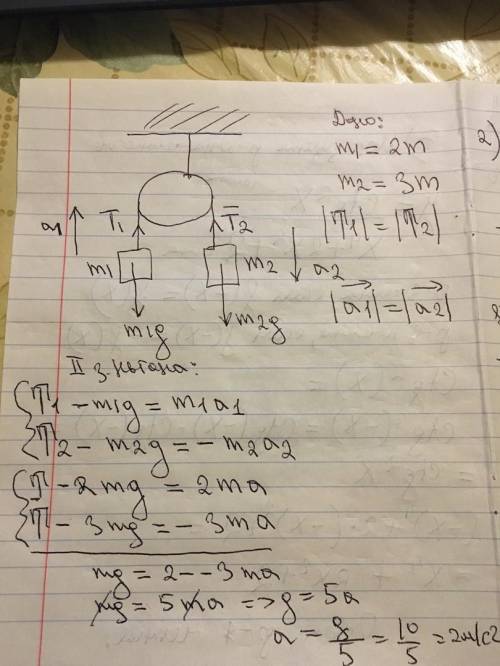 Дано:
m1 = 2m
m2 = 3m
|T1| = |T2|
|a1| = |a2|
2)
a1
T1
T2
m1
m2
a2
m1g
m2g
II з. Ньютона:
T1 - m1g = m1a1
T2 - m2g = - m2a2
T - 2mg = 2ma
T - 3mg = - 3ma
mg = 2 - - 3ma
mg = 5ma => g = 5a
a = g/5 = 10/5 = 2м/с2